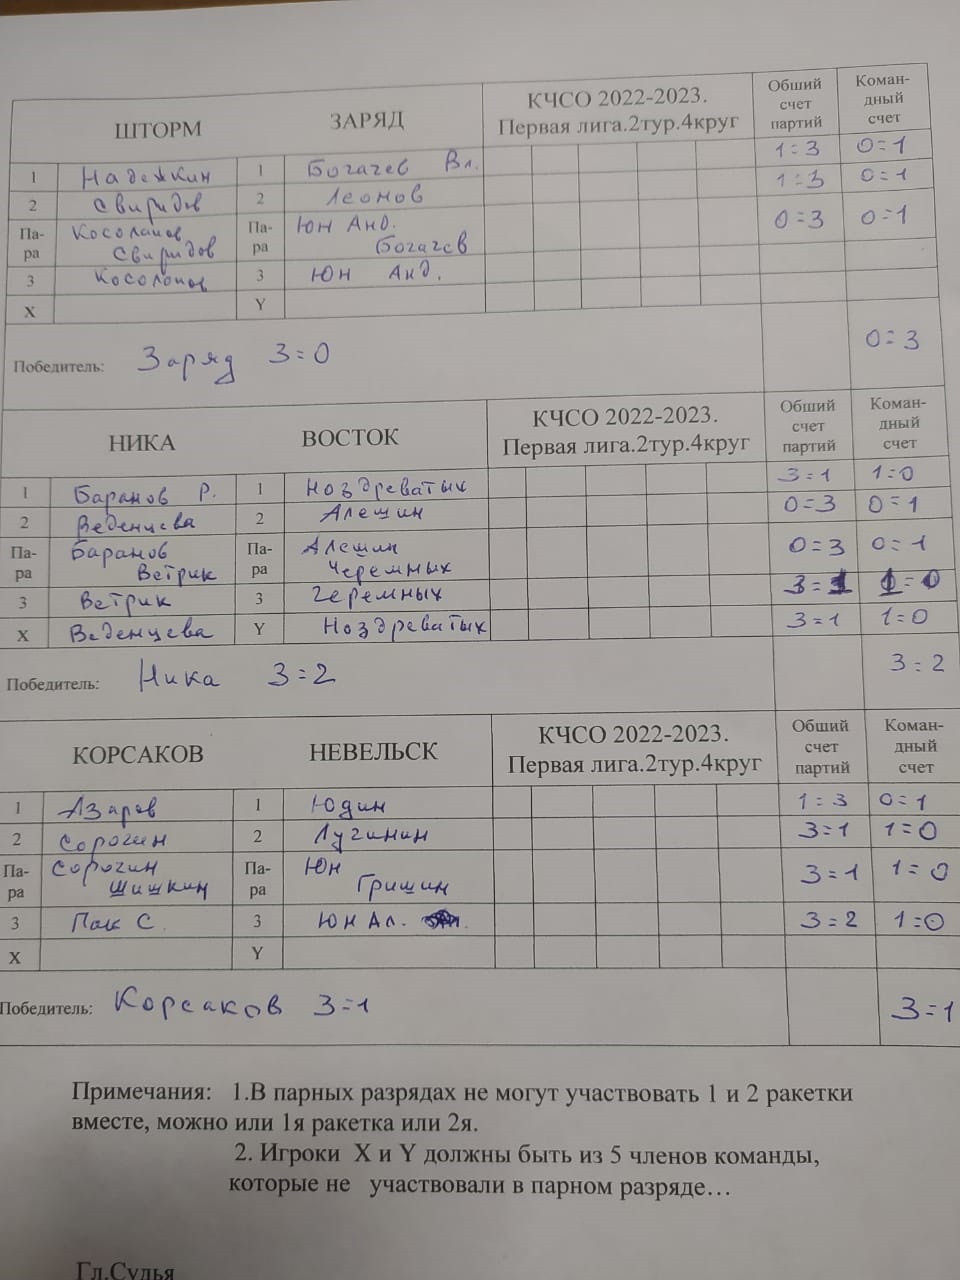 ШТОРМ ЗАРЯД КЧСО 2022-2023. Первая лига.2тур.4круг Обший счет партий Коман-дный счет
1 Надежкин 1 Богачев Вл. 1=3 0=1
2 Свиридов 2 Леонов 1=3 0=1
Па-ра Косолапов Свиридов Па-ра Юн Анд. Богачев 0=3 0=1
3 Косолапов 3 Юн Анд.
X Y
Победитель: Заряд 3=0 0=3
НИКА ВОСТОК КЧСО 2022-2023. Первая лига.2тур.4круг Обший счет партий Коман-дный счет
1 Баранов Р. 1 Ноздреватых 3=1 1=0
2 Веденцева 2 Алешин 0=3 0=1
Па-ра Баранов Ветрик Па-ра Алешин Черемных 0=3 0=1
3 Ветрик 3 Черемных 3=1 1=0
X Веденцева Y Ноздреватых 3=1 1=0
Победитель: Ника 3=2 3=2
КОРСАКОВ НЕВЕЛЬСК КЧСО 2022-2023. Первая лига.2тур.4круг Обший счет партий Коман-дный счет
1 Азаров 1 Юдин 1=3 0=1
2 Сорогин 2 Лугинин 3=1 1=0
Па-ра Сорогин Шишкин Па-ра Юн Гришин 3=1 1=0
3 Пак С. 3 Юн Ал. 3=2 1=0
X Y
Победитель: Корсаков 3=1 3=1
Примечания: 1.В парных разрядах не могут участвовать 1 и 2 ракетки
вместе, можно или 1я ракетка или 2я.
2. Игроки X и Y должны быть из 5 членов команды,
которые не участвовали в парном разряде…
Гл.Судья